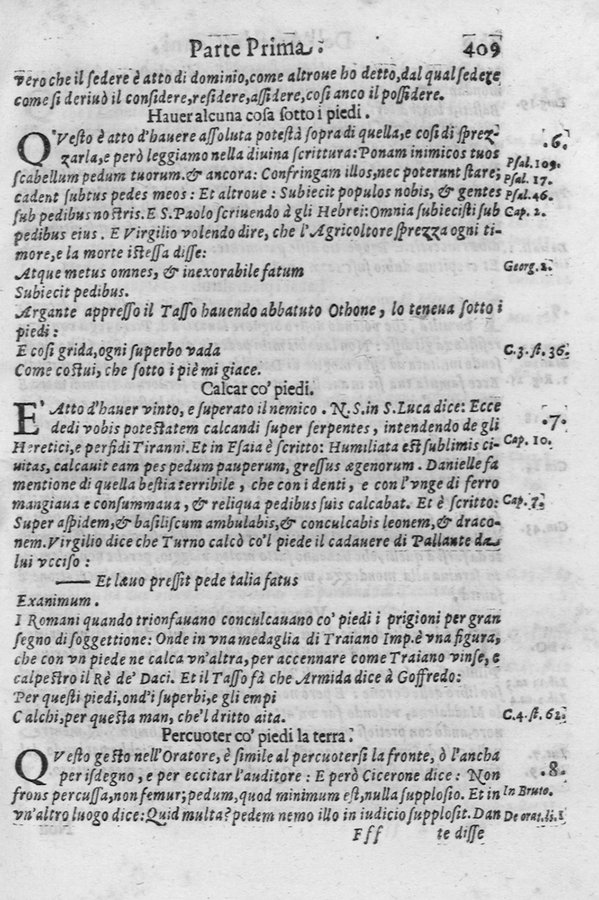 Parte Prima. 409
vero che il sedere è atto di dominio, come altroue ho detto, dal qual sedere
come si deriuò il considere, residere, assidere, cosi anco il possidere.
Hauer alcuna cosa sotto i piedi.
QVesto è atto d'hauere assoluta potestà sopra di quella, e cosi di sprez- .6.
zarla, e però leggiamo nella diuina scrittura: Ponam inimicos tuos Psal. 109.
scabellum pedum tuorum. & ancora: Confringam illos, nec poterunt stare; Psal. 17.
cadent subtus pedes meos: Et altroue: Subiecit populos nobis, & gentes Psal. 46.
sub pedibus nostris. E S. Paolo scriuendo à gli Hebrei: Omnia subiecisti sub Cap. 2.
pedibus eius. E Virgilio volendo dire, che l'Agricoltore sprezza ogni ti-
more, e la morte istessa disse:
Atque metus omnes, & inexorabile fatum Georg. 2.
Subiecit pedibus.
Argante appresso il Tasso hauendo abbatuto Othone, lo teneua sotto i
piedi:
E cosi grida, ogni superbo vada C. 3. st. 36.
Come costui, che sotto i piè mi giace.
Calcar co' piedi.
E' Atto d'hauer vinto, e superato il nemico. N. S. in S. Luca dice: Ecce .7.
dedi vobis potestatem calcandi super serpentes, intendendo de gli
Heretici, e perfidi Tiranni. Et in Esaia è scritto: Humiliata est sublimis ci- Cap. 10.
uitas, calcauit eam pes pedum pauperum, gressus ægenorum. Danielle fa
mentione di quella bestia terribile, che con i denti, e con l'vnge di ferro
mangiaua e consummaua, & reliqua pedibus suis calcabat. Et è scritto: Cap. 7.
Super aspidem, & basiliscum ambulabis, & conculcabis leonem, & draco-
nem. Virgilio dice che Turno calcò co'l piede il cadauere di Pallante da
lui vcciso:
—— Et læuo pressit pede talia fatus
Exanimum.
I Romani quando trionfauano conculcauano co' piedi i prigioni per gran
segno di soggettione: Onde in vna medaglia di Traiano Imp. è vna figura,
che con vn piede ne calca vn'altra, per accennare come Traiano vinse, e
calpestro il Rè de' Daci. Et il Tasso fà che Armida dice à Goffredo:
Per questi piedi, ond'i superbi, e gli empi
Calchi, per questa man, che'l dritto aita. C. 4. st. 62.
Percuoter co' piedi la terra.
QVesto gesto nell'Oratore, è simile al percuotersi la fronte, ò l'ancha .8.
per isdegno, e per eccitar l'auditore: E però Cicerone dice: Non
frons percussa, non femur; pedum, quod minimum est, nulla supplosio. Et in In Bruto.
vn'altro luogo dice: Quid multa? pedem nemo illo in iudicio supplosit. Dan De orat. li. 1
F f f te disse